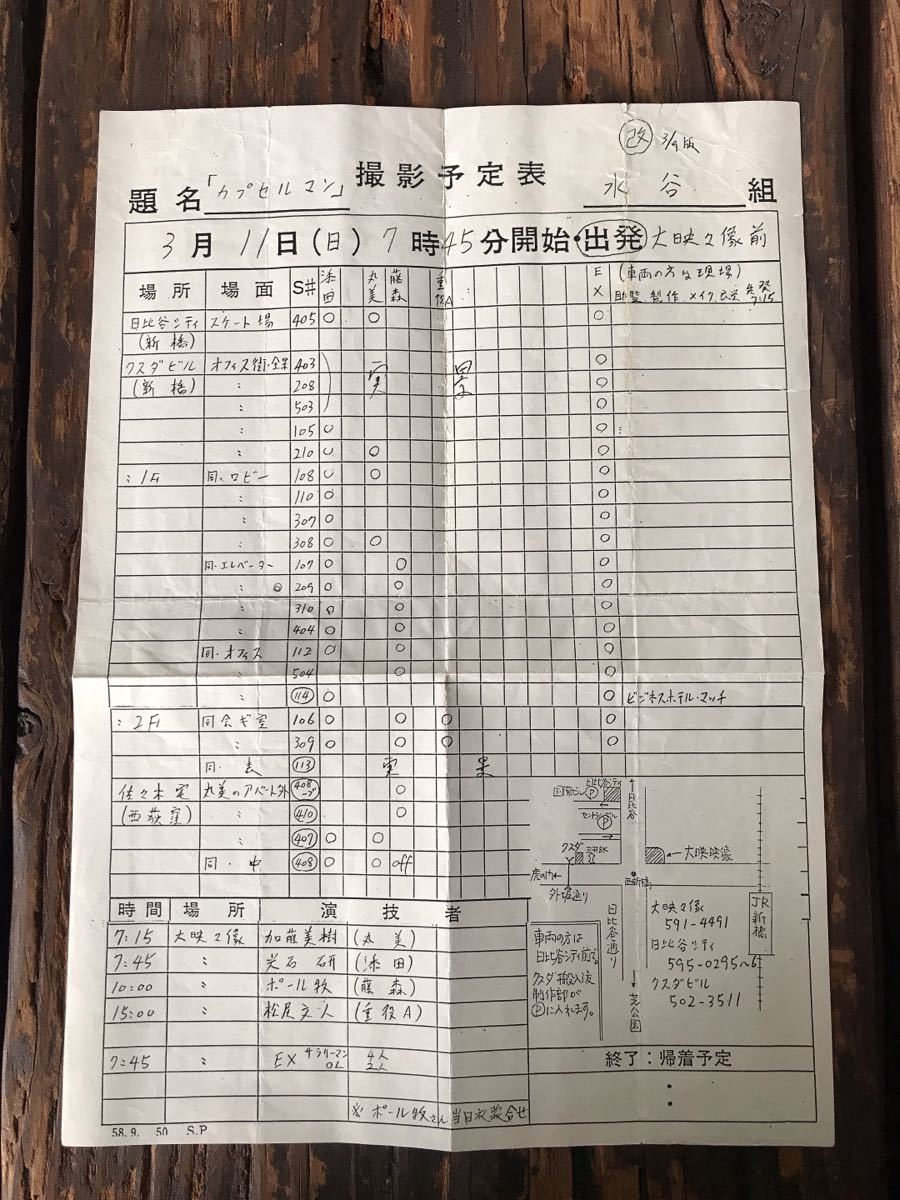 改 3/9版
撮影予定表
題名「カプセルマン」 水谷 組
3月11日(日)7時45分開始・出発 大映々像前
場所 場面 S# 添田 丸美 藤森 重役A EX (車両の方は現場)
助監、製作、メイク、衣裳 先発 7:15
日比谷シティ スケート場 405 ○ ○ ○
(新橋)
クスダビル オフィス街・全景 403 実景 ○
(新橋) 〃 208 ○
〃 503 ○
〃 105 ○ ○
〃 210 ○ ○ ○
〃1F 同・ロビー 108 ○ ○ ○
〃 110 ○ ○
〃 307 ○ ○
〃 308 ○ ○ ○
同・エレベーター 107 ○ ○
〃 209 ○ ○ ○
〃 310 ○ ○ ○
〃 404 ○ ○ ○
同・オフィス 112 ○ ○ ○
〃 504 ○ ○
〃 114 ○ ○ ビジネスホテル・マッチ
〃2F 同会ギ室 106 ○ ○ ○ ○
〃 309 ○ ○ ○ ○
同・表 113 実景
佐々木宅 丸美のアパート外 408 ○
(西荻窪) 〃 410 ○
〃 407 ○ ○
同・中 408 ○ ○ off
日比谷シティ
P
日比谷
P
クスダ
大映映像
虎の門
外堀通り
西新橋
日比谷通り
芝公園
JR新橋
大映々像
591-4491
日比谷シティ
595-0295〜6
クスダビル
502-3511
車両の方は
日比谷シティ前へ。
クスダ搬入後
制作部が
Pに入れます。
時間 場所 演技者
7:15 大映々像 加藤美樹(丸美)
7:45 〃 光石研(添田)
10:00 〃 ポール牧(藤森)
15:00 〃 松尾文人(重役A)
7:45 〃 EX サラリーマン 4人
OL 2人
※ ポール牧さん当日衣裳合せ
終了:帰着予定
:
58. 9. 50 S.P